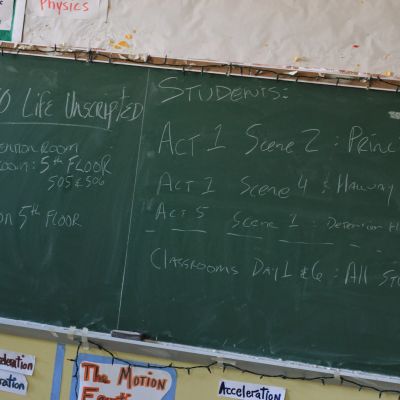 Physics
O LIFE UNSCRIPTED
STUDENTS:
ENTION ROOM
OOM: 5th FLOOR
505 & 506
ON 5th FLOOR
ACT 1 SCENE 2 : PRINC
ACT 1 SCENE 4 : HALLWAY
ACT 5 SCENE 1 : DETENTION H
CLASSROOMS DAY 1 & 6 : ALL STU
celeration
eration
The MOTION
Acceleration